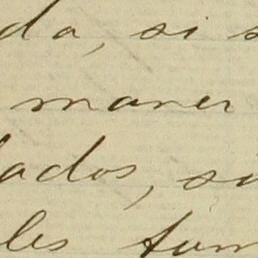 da, si s
maner
lados, si
les fum